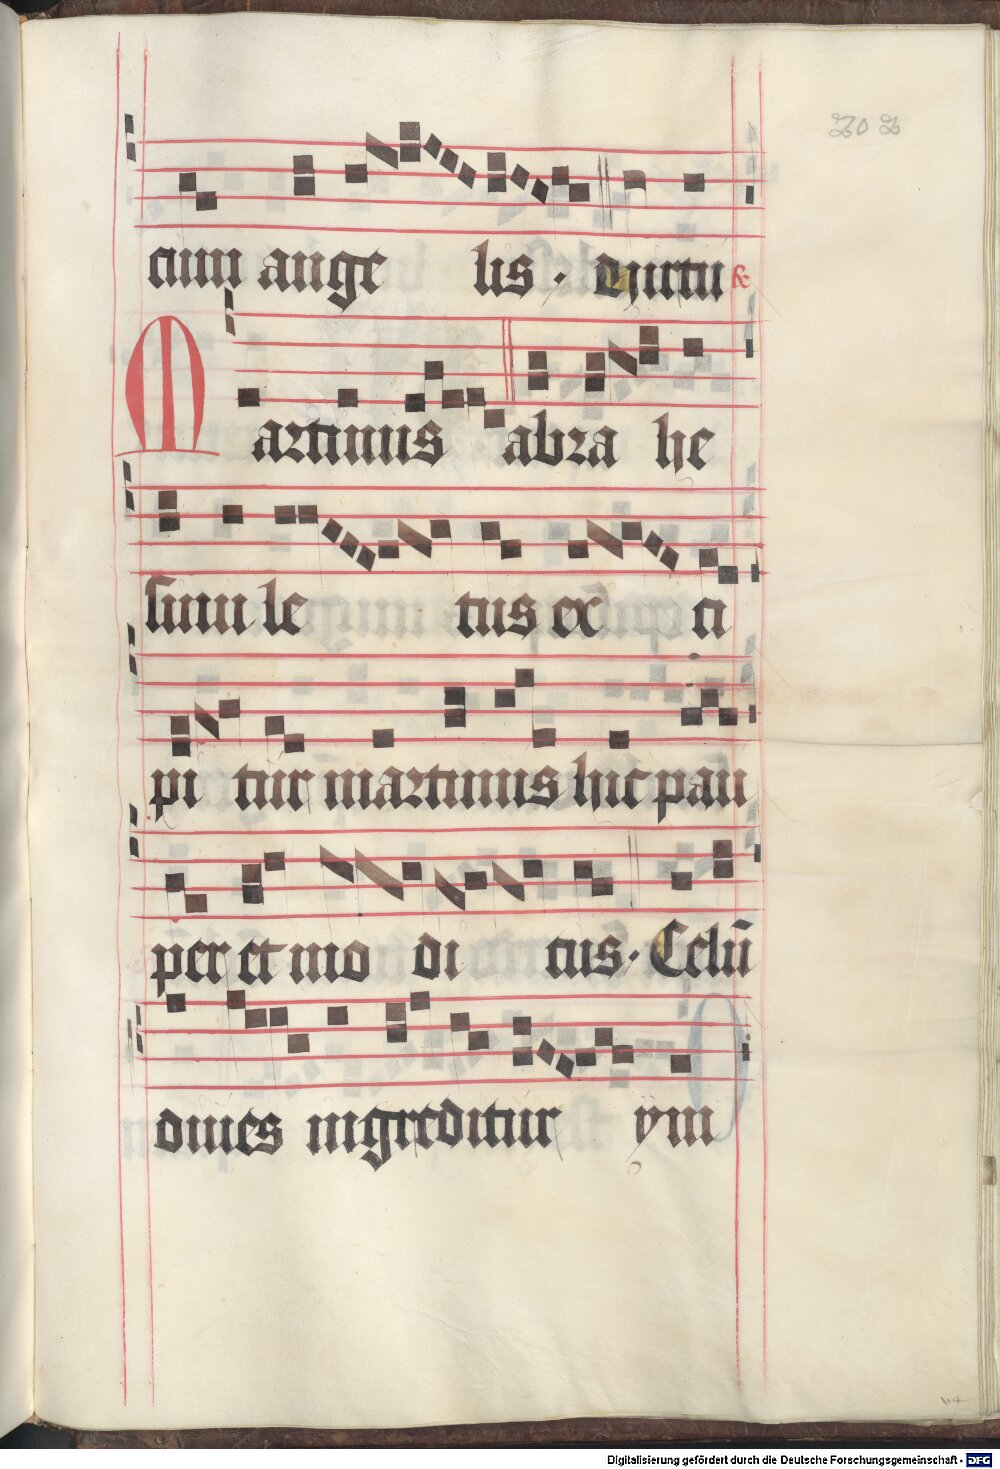 202
cum ange lis · Quirtu
R
Martinus abra he
sinu le tus ex ci
pi tur martinus hic pau
per et mo di cus · Celū
diues ingreditur ym
Digitalisierung gefördert durch die Deutsche Forschungsgemeinschaft - DFG